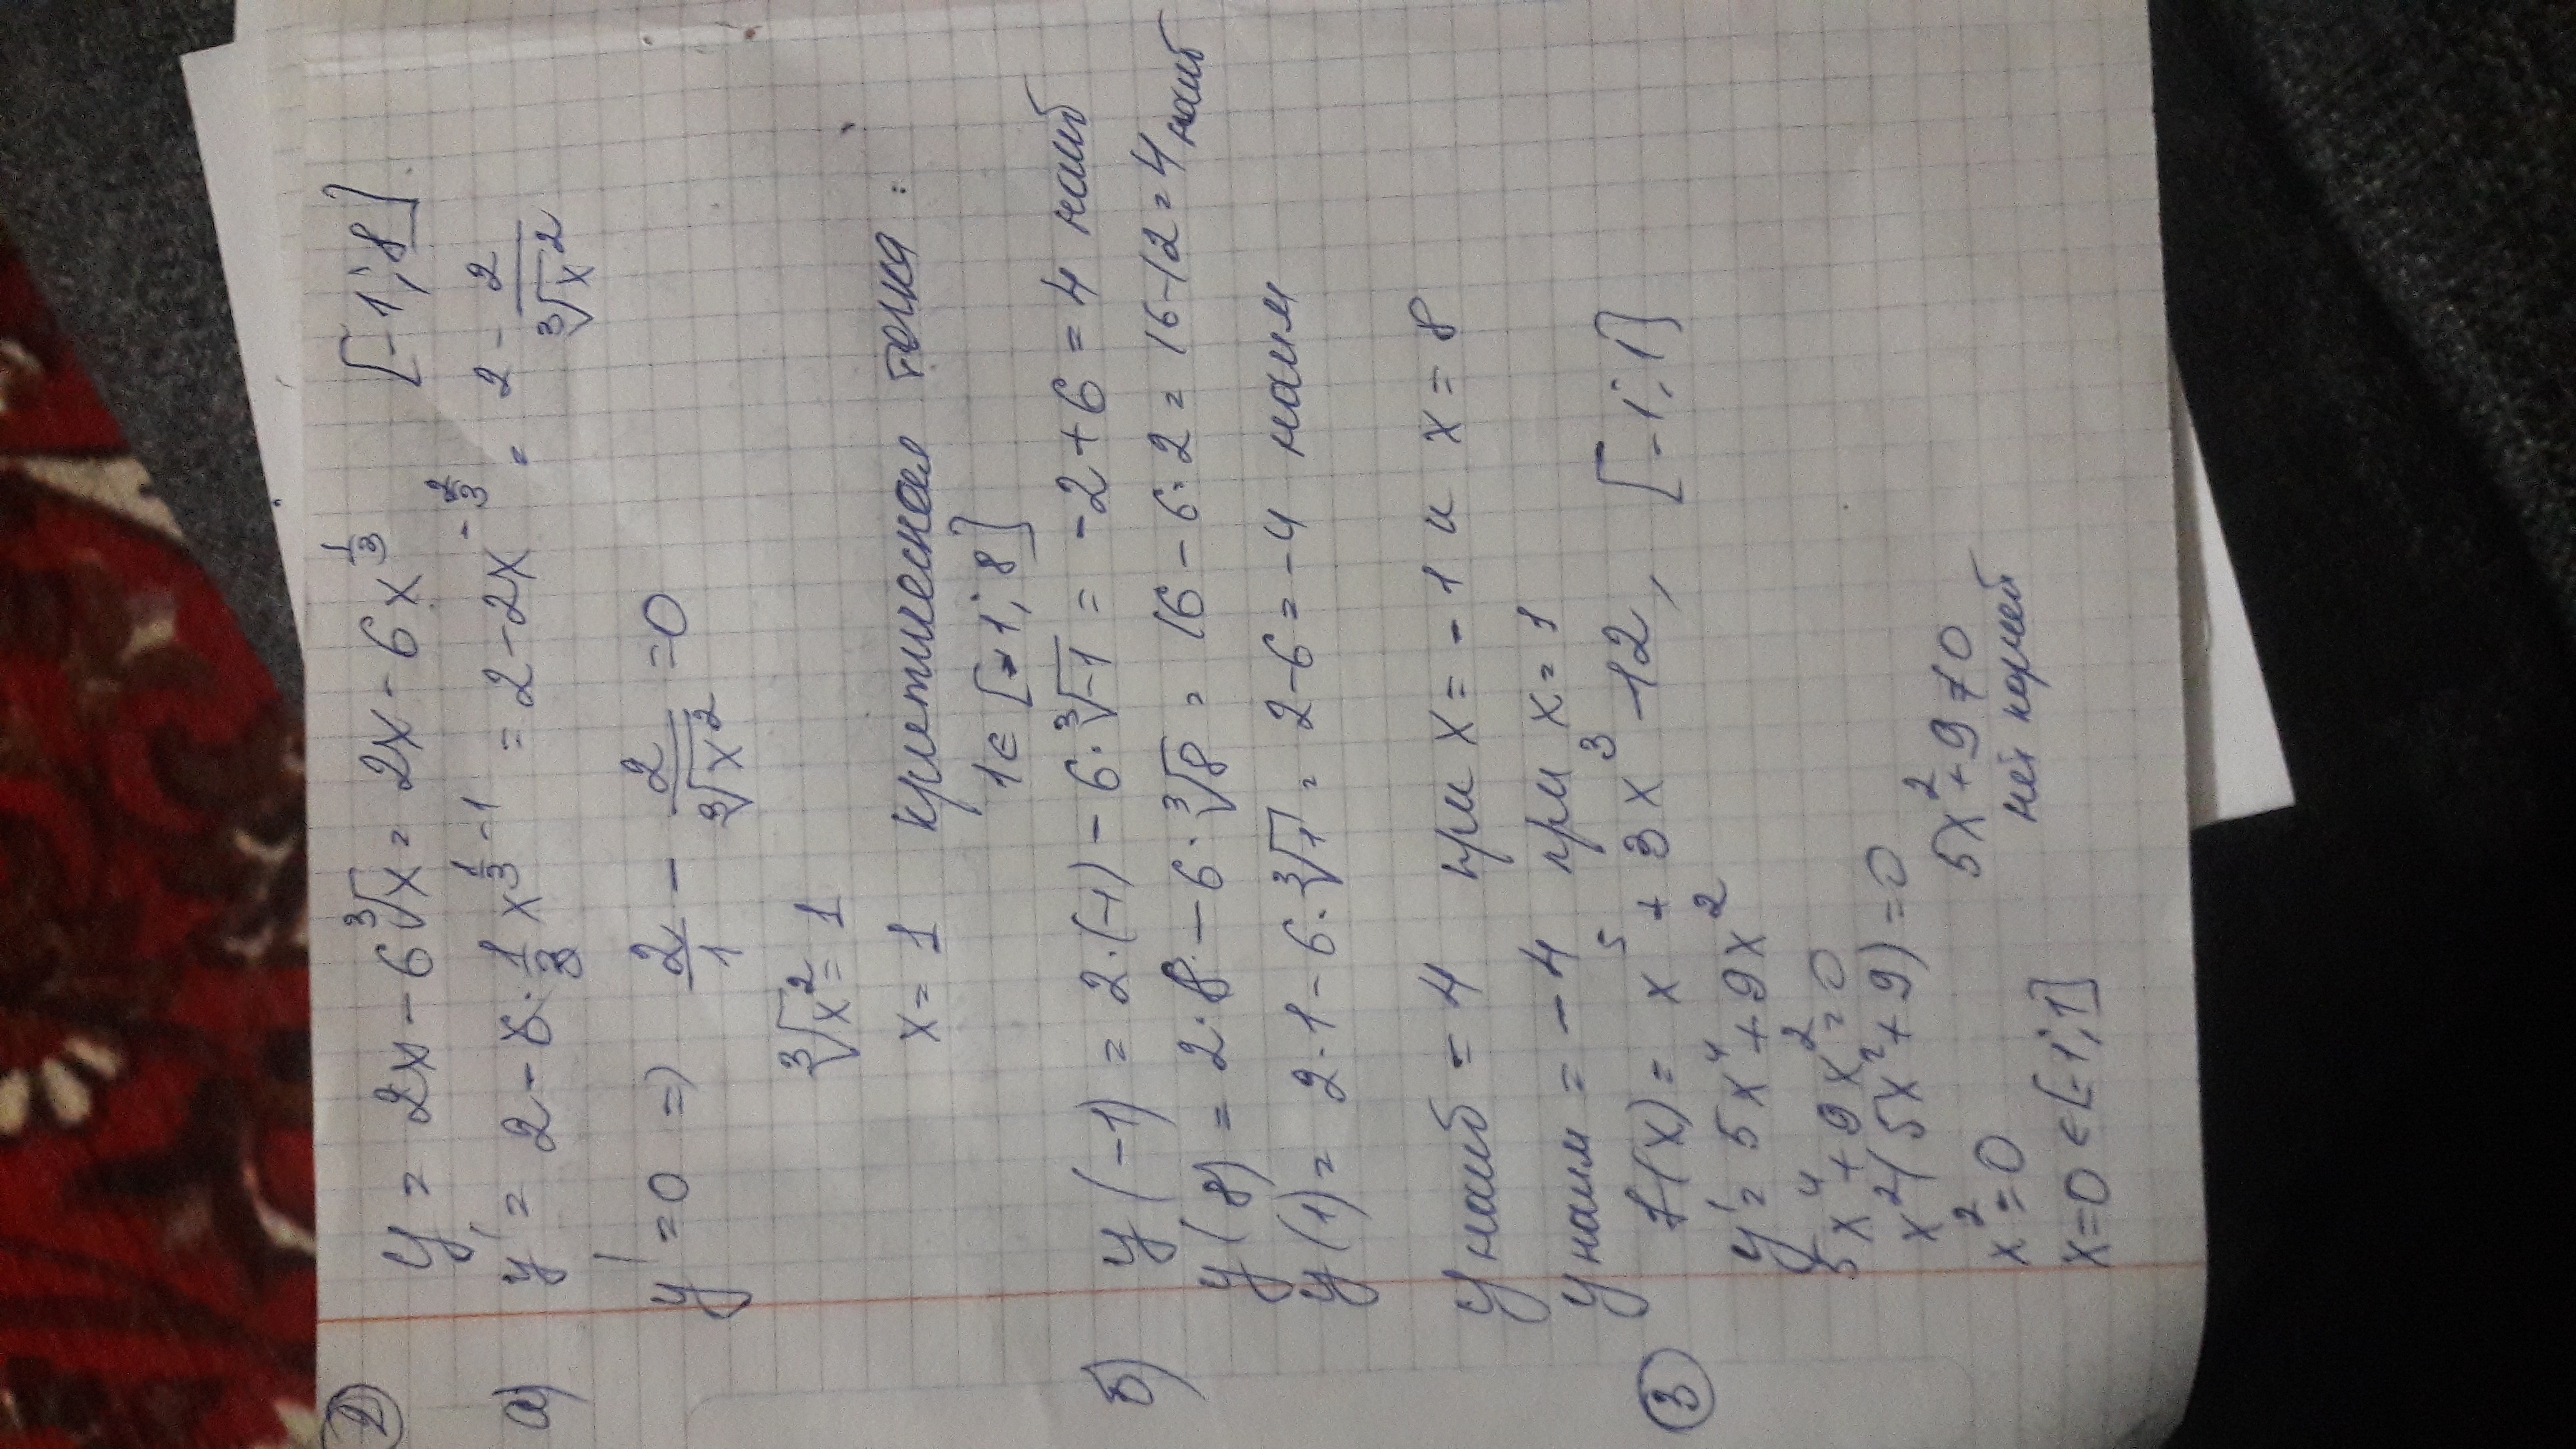 ② y = 2x - 6∛x = 2x - 6x^(1/3) [-1; 8].
а) y' = 2 - 6 · 1/3 x^(1/3 - 1) = 2 - 2x^(-2/3) = 2 - 2/∛x²
y' = 0 => 2/1 - 2/∛x² = 0
∛x² = 1
x = 1 критическая точка :
1 ∈ [-1; 8]
б) y(-1) = 2·(-1) - 6·∛-1 = -2 + 6 = 4 наиб
y(8) = 2·8 - 6·∛8 = 16 - 6·2 = 16-12 = 4 наиб
y(1) = 2·1 - 6·∛1 = 2-6 = -4 наим
y наиб = 4 при x = -1 и x = 8
y наим = -4 при x = 1
③ f(x) = x⁵ + 3x³ - 12, [-1; 1]
y' = 5x⁴ + 9x²
5x⁴ + 9x² = 0
x²(5x² + 9) = 0
x² = 0 5x² + 9 ≠ 0
x = 0 ∈ [-1; 1] нет корней